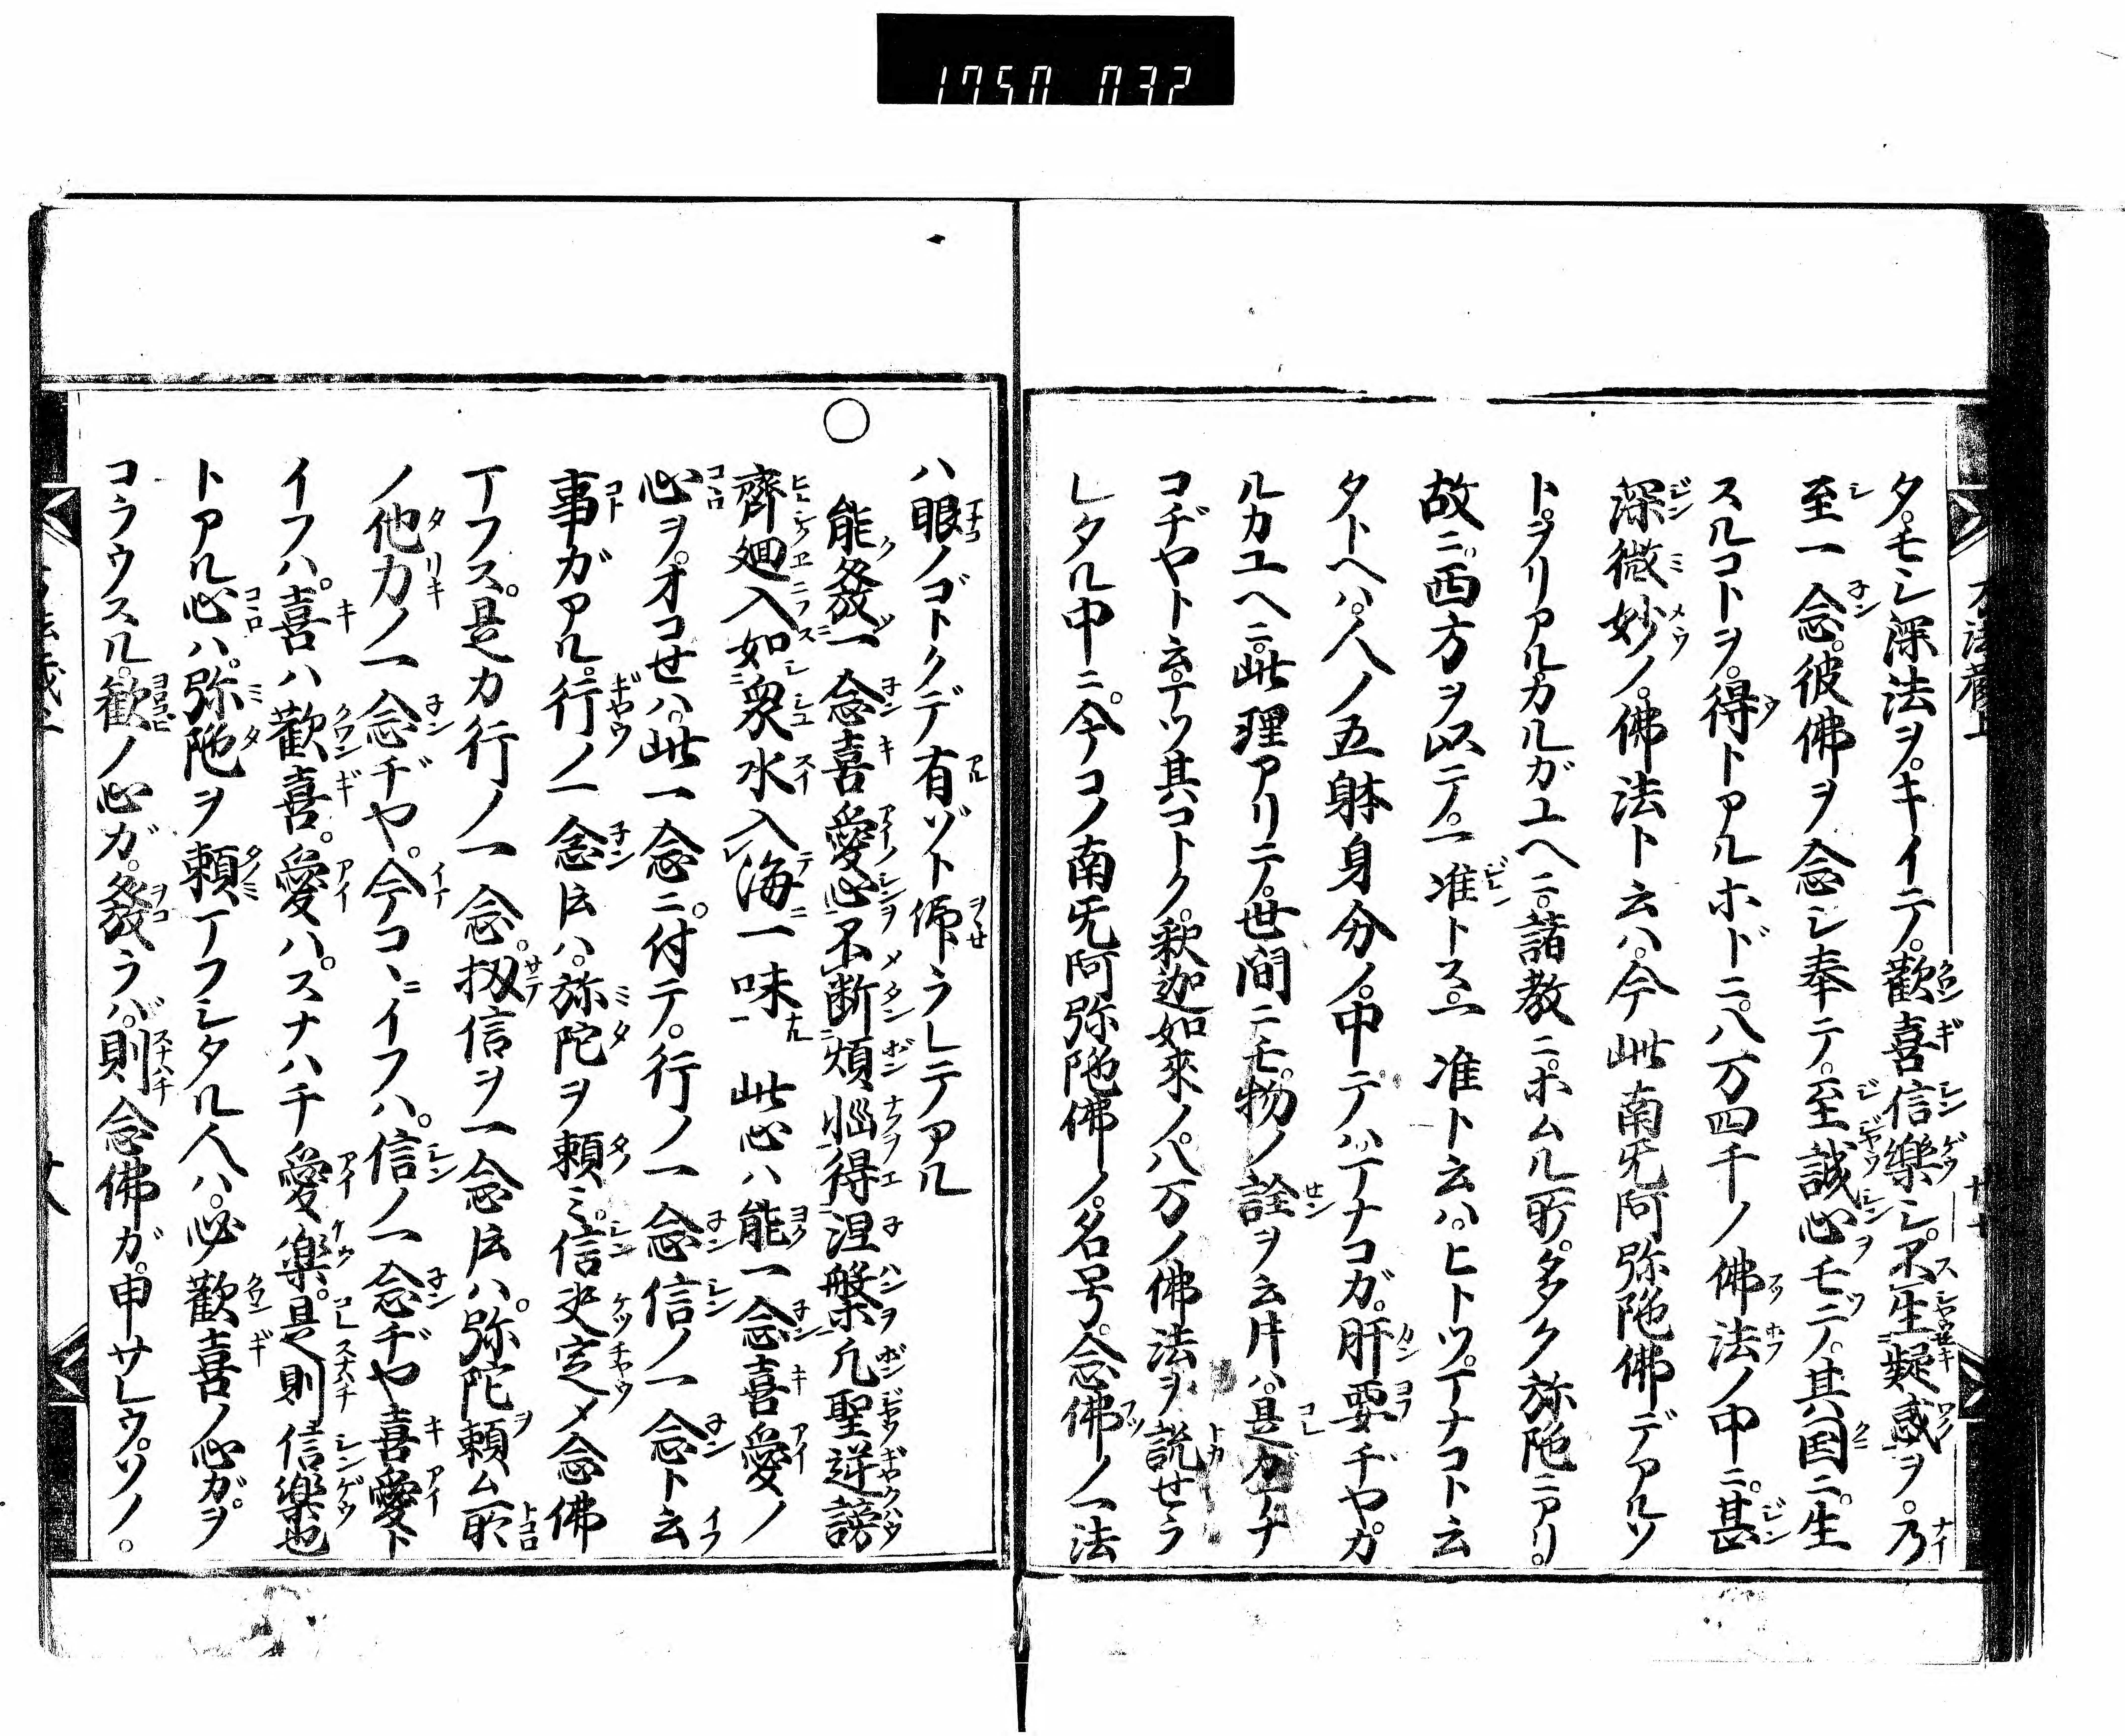 1750 032
タモシ深法ヲ。キイテ。歡喜信樂シ。不生疑惑ヲ。乃
至一念。彼佛ヲ念シ奉テ。至誠心モツテ。其国ニ。生
スルコトヲ。得トアルホドニ。八万四千ノ佛法ノ中ニ。甚
深微妙ノ。佛法ト云ハ。今此南旡阿弥陁佛デアルソ
トヲリアルカルガユヘニ。諸教ニ。ホムル所。多ク弥陁ニアリ。
故ニ。西方ヲ以テ。一准トス。一准ト云ハ。ヒトツ。マナコト云
タトヘハ。人ノ五躰身分ノ。中テハマナコガ。肝要ヂヤ。カ
ルカユヘニ。此理アリテ。世間ニモ。物ノ詮ヲ云片ハ。是カマナ
コヂヤト云テツ其コトク。釈迦如來ノ八万ノ佛法ヲ説せラ
レタル中ニ。今コノ南旡阿弥陁佛ノ。名号。念佛ノ一法
ハ眼ノゴトクデ有ゾト仰ラレテアル
〇能發一念喜愛心不断煩惱得涅槃凢聖逆謗
齊廻入如衆水入海一味 此心ハ能一念喜愛ノ
心ヲ。オコせハ。此一念ニ。付テ。行ノ一念信ノ一念ト云
事ガアル。行ノ一念𪜈ハ。弥陀ヲ頼ミ。信决定〆念佛
マフス。是カ行ノ一念。扨信ヲ一念𪜈ハ。弥陀頼ム所
ノ他力ノ一念ヂヤ。今コヽニイフハ。信ノ一念ヂヤ喜愛ト
イフハ。喜ハ歡喜。愛ハ。スナハチ愛樂。是則信樂也
トアル心ハ。弥陁ヲ頼マフシタル人ハ。必歡喜ノ心ガ。ヲ
コラウスル。歡ノ心ガ。發ラバ。則念佛ガ。申サレウ。ソノ。